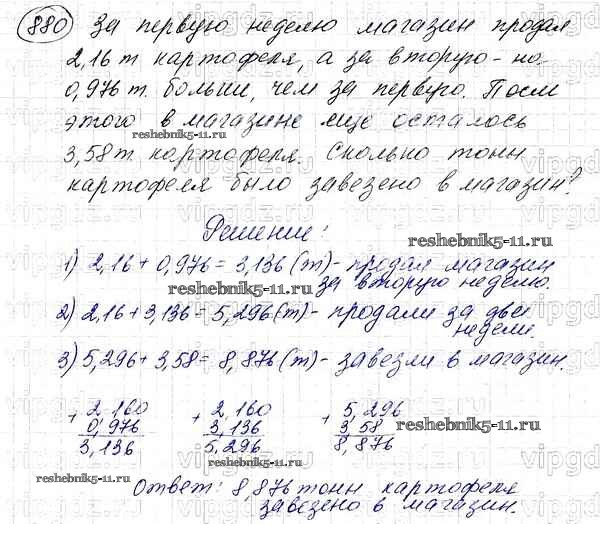 880 За первую неделю магазин продал
2,16 т картофеля, а за вторую - на
0,976 т. больше, чем за первую. После
этого в магазине еще осталось
reshebnik5-11.ru
3,58 т. картофеля. Сколько тонн
картофеля было завезено в магазин?
Решение:
reshebnik5-11.ru
1) 2,16 + 0,976 = 3,136 (т) - продал магазин
за вторую неделю.
reshebnik5-11.ru
2) 2,16 + 3,136 = 5,296 (т) - продали за две
недели.
3) 5,296 + 3,58 = 8,876 (т) - завезли в магазин.
+ 2,160 + 2,160 + 5,296
0,976 3,136 3,58
3,136 5,296 8,876
reshebnik5-11.ru
reshebnik5-11.ru
Ответ: 8,876 тонн картофеля
завезено в магазин.
reshebnik5-11.ru